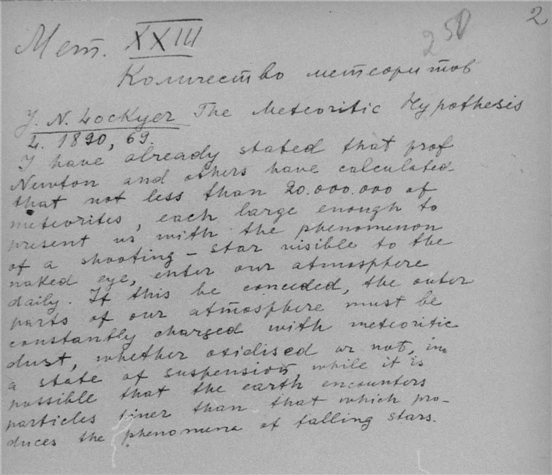 2
Мет. XXIII
250
Количество метеоритов
J. N. Lockyer The Meteoritic Hypothesis
L. 1890, 69.
I have already stated that prof
Newton and others have calculated
that not less than 20.000.000 of
meteorites, each large enough to
present us with the phenomenon
of a shooting-star visible to the
naked eye, enter our atmosphere
daily. If this be conceded, the outer
parts of our atmosphere must be
constantly charged with meteoritic
dust, whether oxidised or not, in
a state of suspension, while it is
possible that the earth encounters
particles finer than that which pro-
duces the phenomena of falling stars.